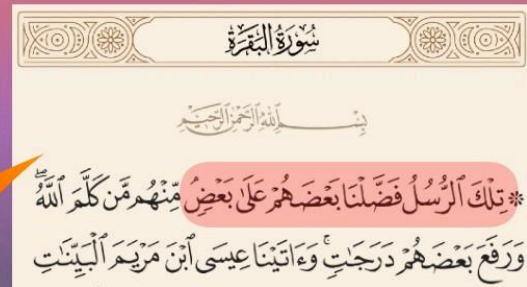 سُورَةُ البَقَرَةِ
بِسْمِ ٱللَّهِ ٱلرَّحْمَٰنِ ٱلرَّحِيمِ
۞ تِلْكَ ٱلرُّسُلُ فَضَّلْنَا بَعْضَهُمْ عَلَىٰ بَعْضٍ مِّنْهُم مَّن كَلَّمَ ٱللَّهُۖ
وَرَفَعَ بَعْضَهُمْ دَرَجَٰتٍۚ وَءَاتَيْنَا عِيسَى ٱبْنَ مَرْيَمَ ٱلْبَيِّنَٰتِ